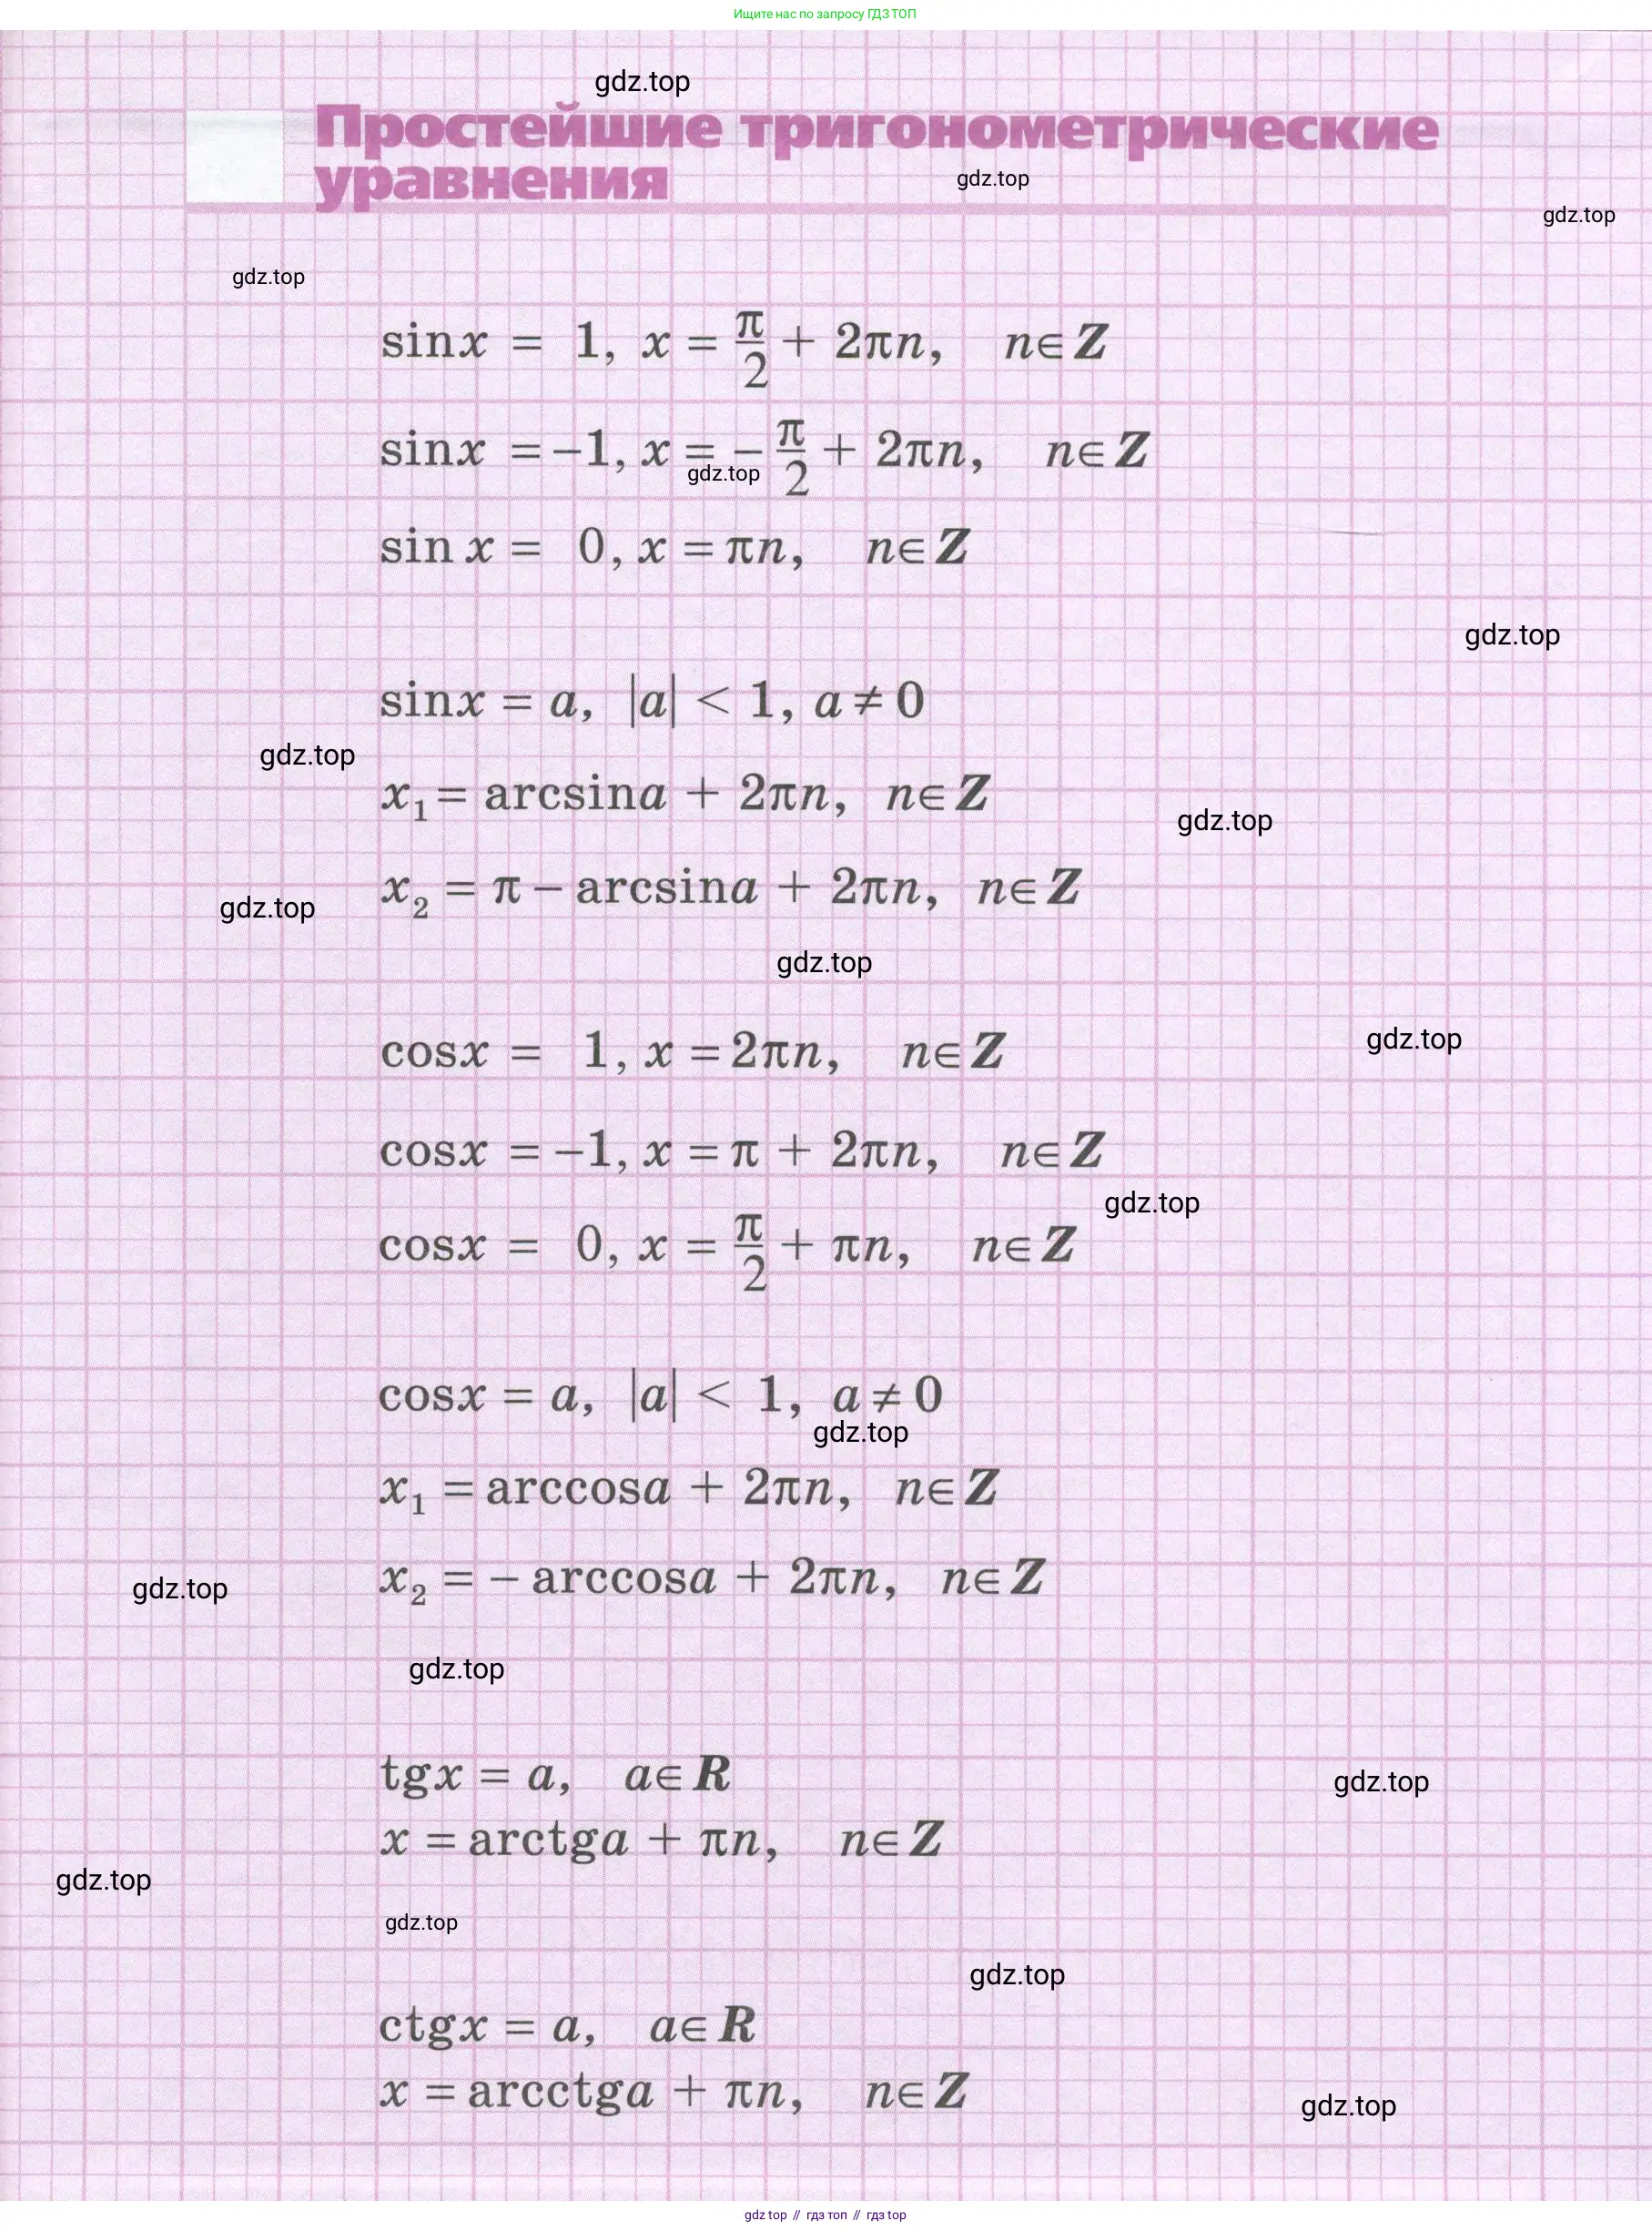 Ищите нас по запросу ГДЗ ТОП
gdz.top
Простейшие тригонометрические
уравнения
gdz.top
gdz.top
gdz.top
sinx = 1, x = π/2 + 2πn, n∈Z
sinx = −1, x = −π/2 + 2πn, n∈Z
gdz.top
sin x = 0, x = πn, n∈Z
gdz.top
sinx = a, |a| < 1, a ≠ 0
gdz.top
x₁ = arcsina + 2πn, n∈Z
gdz.top
x₂ = π − arcsina + 2πn, n∈Z
gdz.top
gdz.top
gdz.top
cosx = 1, x = 2πn, n∈Z
cosx = −1, x = π + 2πn, n∈Z
gdz.top
cosx = 0, x = π/2 + πn, n∈Z
cosx = a, |a| < 1, a ≠ 0
gdz.top
x₁ = arccosa + 2πn, n∈Z
x₂ = − arccosa + 2πn, n∈Z
gdz.top
gdz.top
tgx = a, a∈R
gdz.top
x = arctga + πn, n∈Z
gdz.top
gdz.top
gdz.top
ctgx = a, a∈R
x = arcctga + πn, n∈Z
gdz.top
gdz top // гдз топ // гдз top